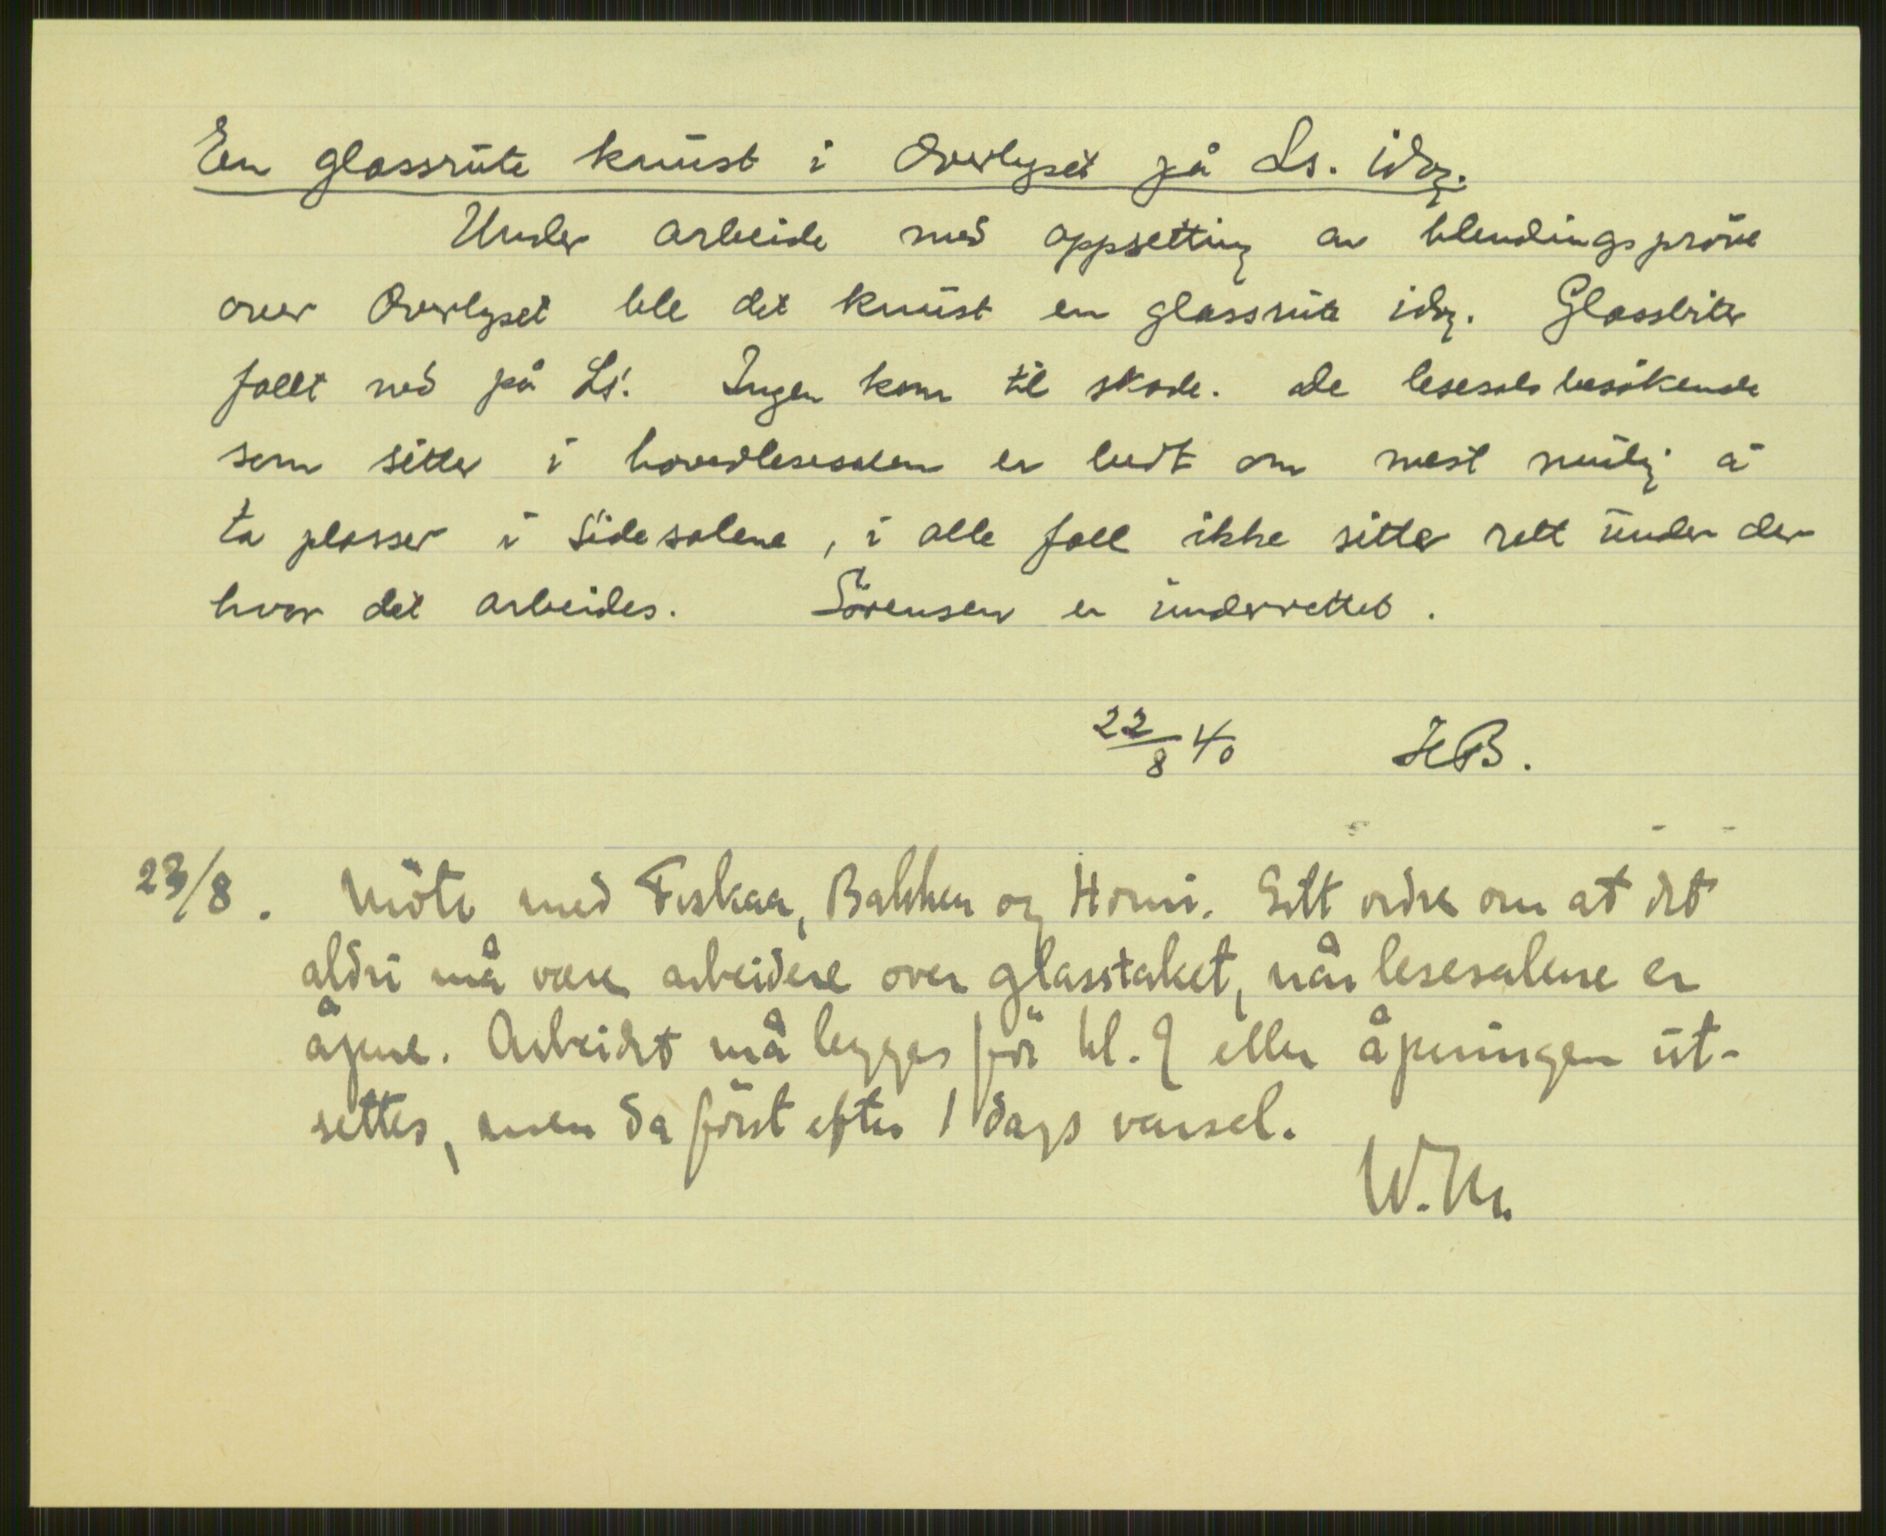 En glassrute knust i Overlyset på Ls. idag.
Under arbeide med oppsetting av blendingspröve
over Overlyset ble det knust en glassrute idag. Glassbiter
fallt ned på Ls. Ingen kom til skade. De lesesalsbesökende
som sitter i hovedlesesalen er budt om mest mulig å
ta plasser i sidesalene, i alle fall ikke sitte rett under der
hvor det arbeides. Sörensen er underrettet.
22/8 40 HB.
23/8. Möte med Fiskaa, Bakken og Horni. Gitt ordre om at det
aldri må være arbeidere over glasstaket, når lesesalene er
åpne. Arbeidet må legges för kl. 9 eller åpningen ut-
settes, men da först efter 1 dags varsel.
W.M.